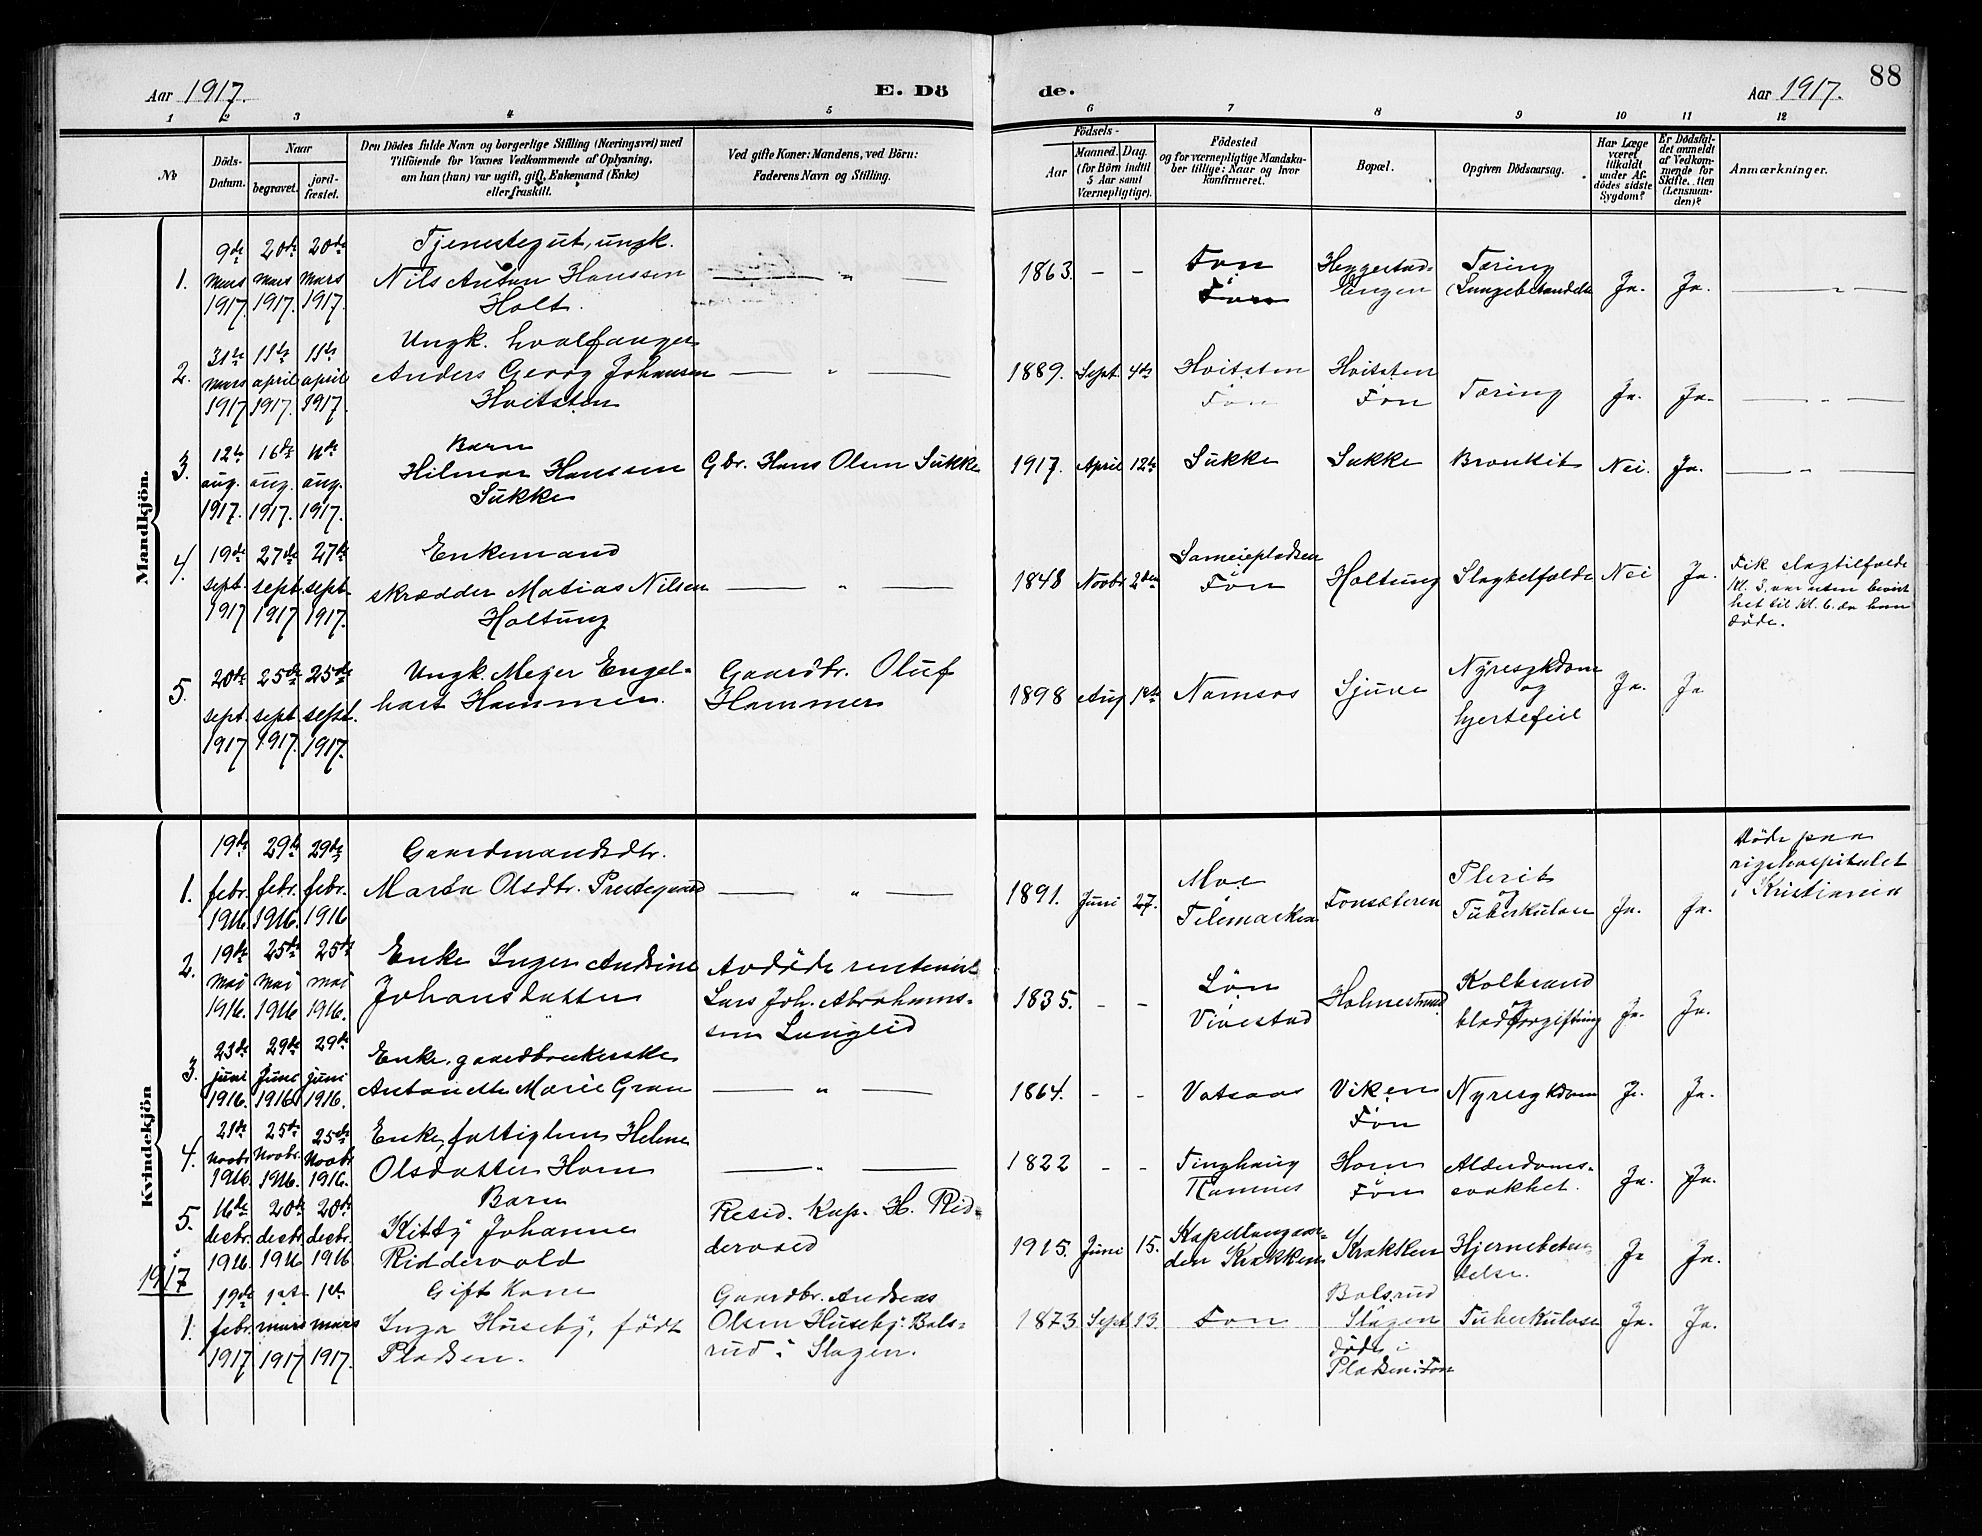 Aar 1917.
E. Dö
de.
Aar 1917.
88
1 2 3 4 5 6 7 8 9 10 11 12
No
Döds-
Datum.
Naar
begravet.
jord-
fæstet.
Den Dödes fulde Navn og borgerlige Stilling (Næringsvei) med
Tilföiende for Voxnes Vedkommende af Oplysning,
om han (hun) var ugift, gift, Enkemand (Enke)
eller fraskilt.
Ved gifte Koner: Mandens, ved Börn:
Faderens Navn og Stilling.
Födsels-
Aar
Maaned. Dag.
(for Börn indtil
5 Aar samt
Værnepligtige).
Födested
og for værnepligtige Mandska-
ber tillige: Naar og hvor
konfirmeret.
Bopæl.
Opgiven Dödsaarsag.
Har Læge
været
tilkaldt
under Af-
dödes sidste
Sygdom?
Er Dödsfal-
det anmeldt
af Vedkom-
mende for
Skifteretten
(Lensman-
den)?
Anmærkninger.
Mandkjön.
1.
9de mars 1917
20de mars 1917.
20de mars 1917.
Tjenestegut, ungk.
Nils Anton Hanssen
Holt.
— " —
1863. - -
Fon
Fon
Heggestad-
Engen
Tæring
Ja. Ja.
— " —
2.
31te mars 1917
11te april 1917.
11te april 1917.
Ungk. hvalfanger
Anders Georg Johansen
Hvitsten
— " —
1889. Sept. 4de
Hvitsten
Fon
Hvitsten
Fon
Tæring
Ja. Ja.
— " —
3.
12te aug. 1917.
16de aug. 1917.
aug. 1917.
Barn
Hilmar Hanssen
Sukke
Gbr. Hans Olsen Sukke
1917. April 12te
Sukke
Sukke
Bronkit
Nei. Ja.
— " —
4.
19de sept. 1917
27de sept. 1917
27de sept. 1917.
Enkemand
skrædder Matias Nilsen
Holtung
— " —
1848 Novbr 2den
Sameiepladsen
Fön
Holtung
Slagtilfælde
Nei Ja.
Fik slagtilfælde
kl. 3, var uten bevist
het til kl. 6. da han
døde.
5.
20de sept. 1917
25de sept. 1917.
25de sept. 1917.
Ungk. Mejer Engel-
hart Hammer.
Gaardbr. Oluf
Hammer
1898 Aug 1ste
Namsos
Sjuve
Nyresykdom
og
hjertefeil
Ja. Ja
Kvindekjön
1.
19de febr. 1916.
29de febr. 1916.
29de febr. 1916
Gaardmandsdtr.
Marta Olsdtr. Prestegaard
— " —
1891. Juni 27.
Moe
Telemarken
Fonsæteren
Plerit
og
Tuberkulose
Ja. Ja.
Døde paa
rigshospitalet
i Kristiania
2.
19de mai 1916.
25de mai 1916
25de mai 1916.
Enke Inger Andrine
Johansdatter
Avdøde rentenist
Lars Joh. Abrahams-
sen Langlid
1835. - -
Løn
Vivestad
Holmestrand
Kolbrand
blodforgiftning
Ja. Ja.
3.
23de juni 1916.
29de Juni 1916
29de juni 1916.
Enke, gaardbrukerske
Antonette Marie Gran
— " —
1864. - -
Vatsaas
Viken
Fon
Nyresykdom
Ja. Ja.
4.
21de Novbr 1916
25de Novbr. 1916.
25de Novbr 1916.
Enke, fattiglem Helene
Olsdatter Horn
— " —
1822 - -
Tinghaug
Ramnes
Horn
Fön
Alderdoms-
svakhet.
Ja. Ja.
5.
16de desbr. 1916
20de desbr. 1916
20de desbr. 1916
Barn
Kitty Johanne
Riddervold
Resid. Kap. H. Rid-
dervold
1915. Juni 15.
Kapellangaar-
den Krakken
Krakken
Hjernebeten-
delse.
Ja Ja.
1917
1.
19de febr. 1917
1ste mars 1917
1ste mars 1917.
Gift Kone
Inga Huseby, født
Pladsen.
Gaardbr. Andreas
Olsen Huseby: Bals-
rud i Slagen.
1873 Sept 13.
Fon
Balsrud
Slagen
døde i
Pladsen i Fon
Tuberkulose
Ja. Ja.